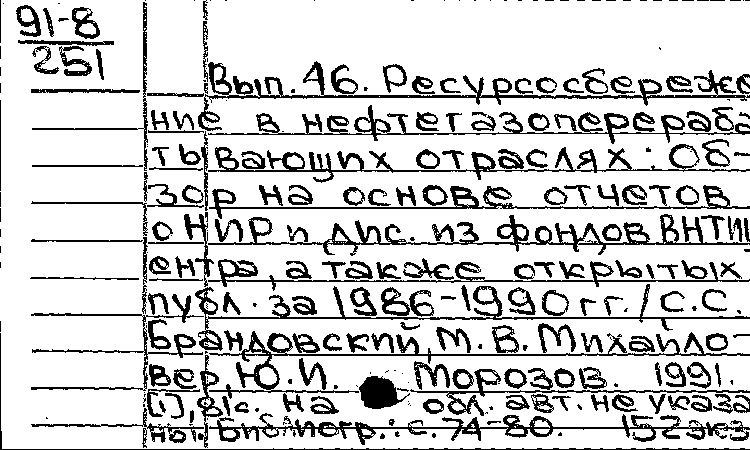 91-8
251
Вып. 46. Ресурсосбереже
ние в нефтегазоперераба
тывающих отраслях: Об-
зор на основе отчетов
о НИР и дис. из фондов ВНТИЦ
ентра, а также открытых
публ. за 1986-1990 гг. / С.С.
Брандовский, М. В. Михайло-
вер, Ю. И. Морозов. 1991.
[1], 81с. На обл. авт. не указа
ны. Библиогр.: с. 74-80. 152экз